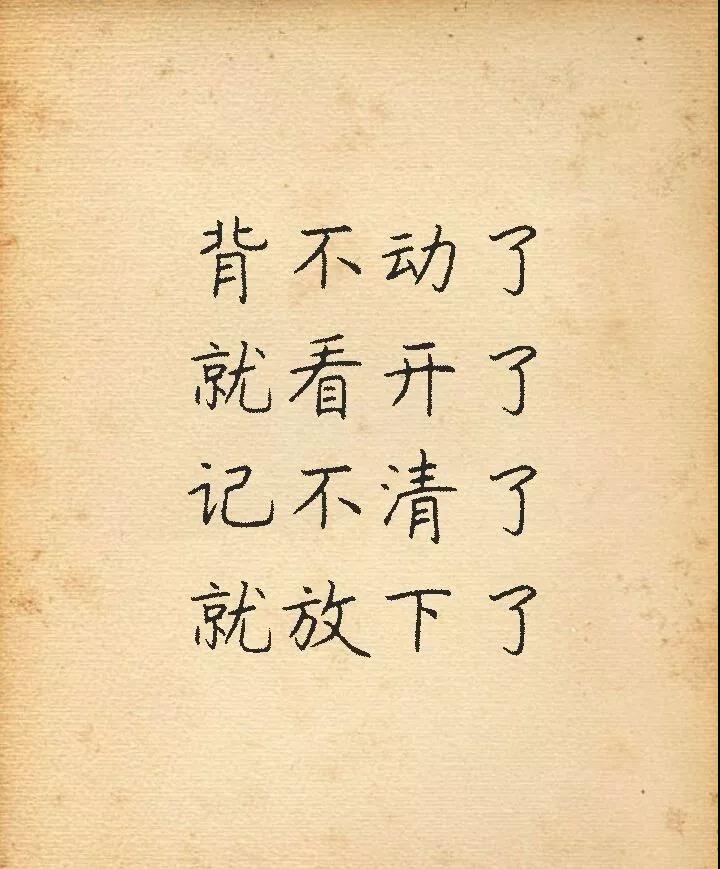 背不动了
就看开了
记不清了
就放下了